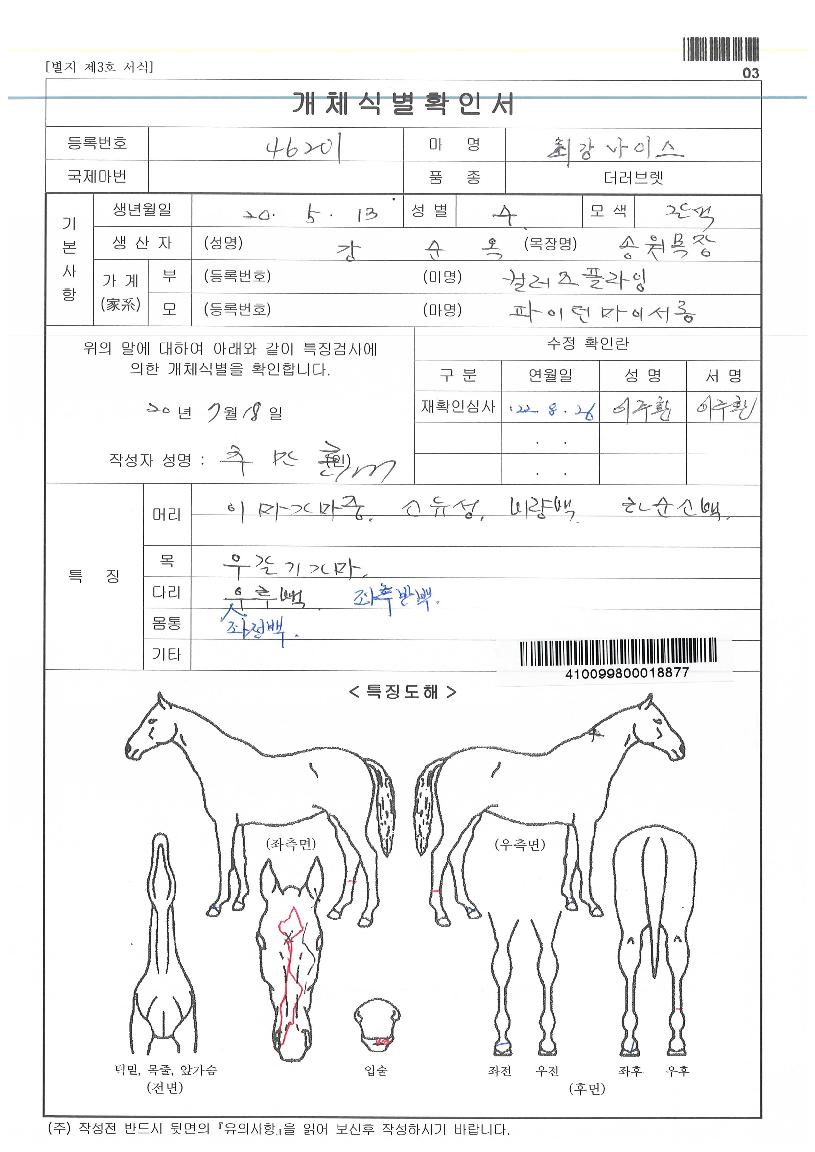 03
[별지 제3호 서식]
개체식별확인서
등록번호 46201 마 명 최강나이스
국제마번 품 종 더러브렛
기본사항 생년월일 20. 5. 13 성별 수 모색 갈색
생 산 자 (성명) 강 순 옥 (목장명) 송원목장
가 계 (家系) 부 (등록번호) (미명) 컬러즈플라잉
모 (등록번호) (마명) 파이널마이서롱
위의 말에 대하여 아래와 같이 특징검사에
의한 개체식별을 확인합니다.
20년 7월 18일
작성자 성명 : 추 만 (인)
수정 확인란
구 분 연월일 성 명 서 명
재확인심사 '22. 8. 26 이주환 이주환
. .
. .
특 징
머리 이마가마중. 유성, 비량백. 하순소백.
목 우갈기가마.
다리 우후백. 좌후반백.
몸통 좌전백.
기타
410099800018877
< 특징도해 >
(좌측면) (우측면)
턱밑, 목줄, 앞가슴
(전면)
입술
좌전 우전 좌후 우후
(후면)
(주) 작성전 반드시 뒷면의 『유의사항』을 읽어 보신후 작성하시기 바랍니다.